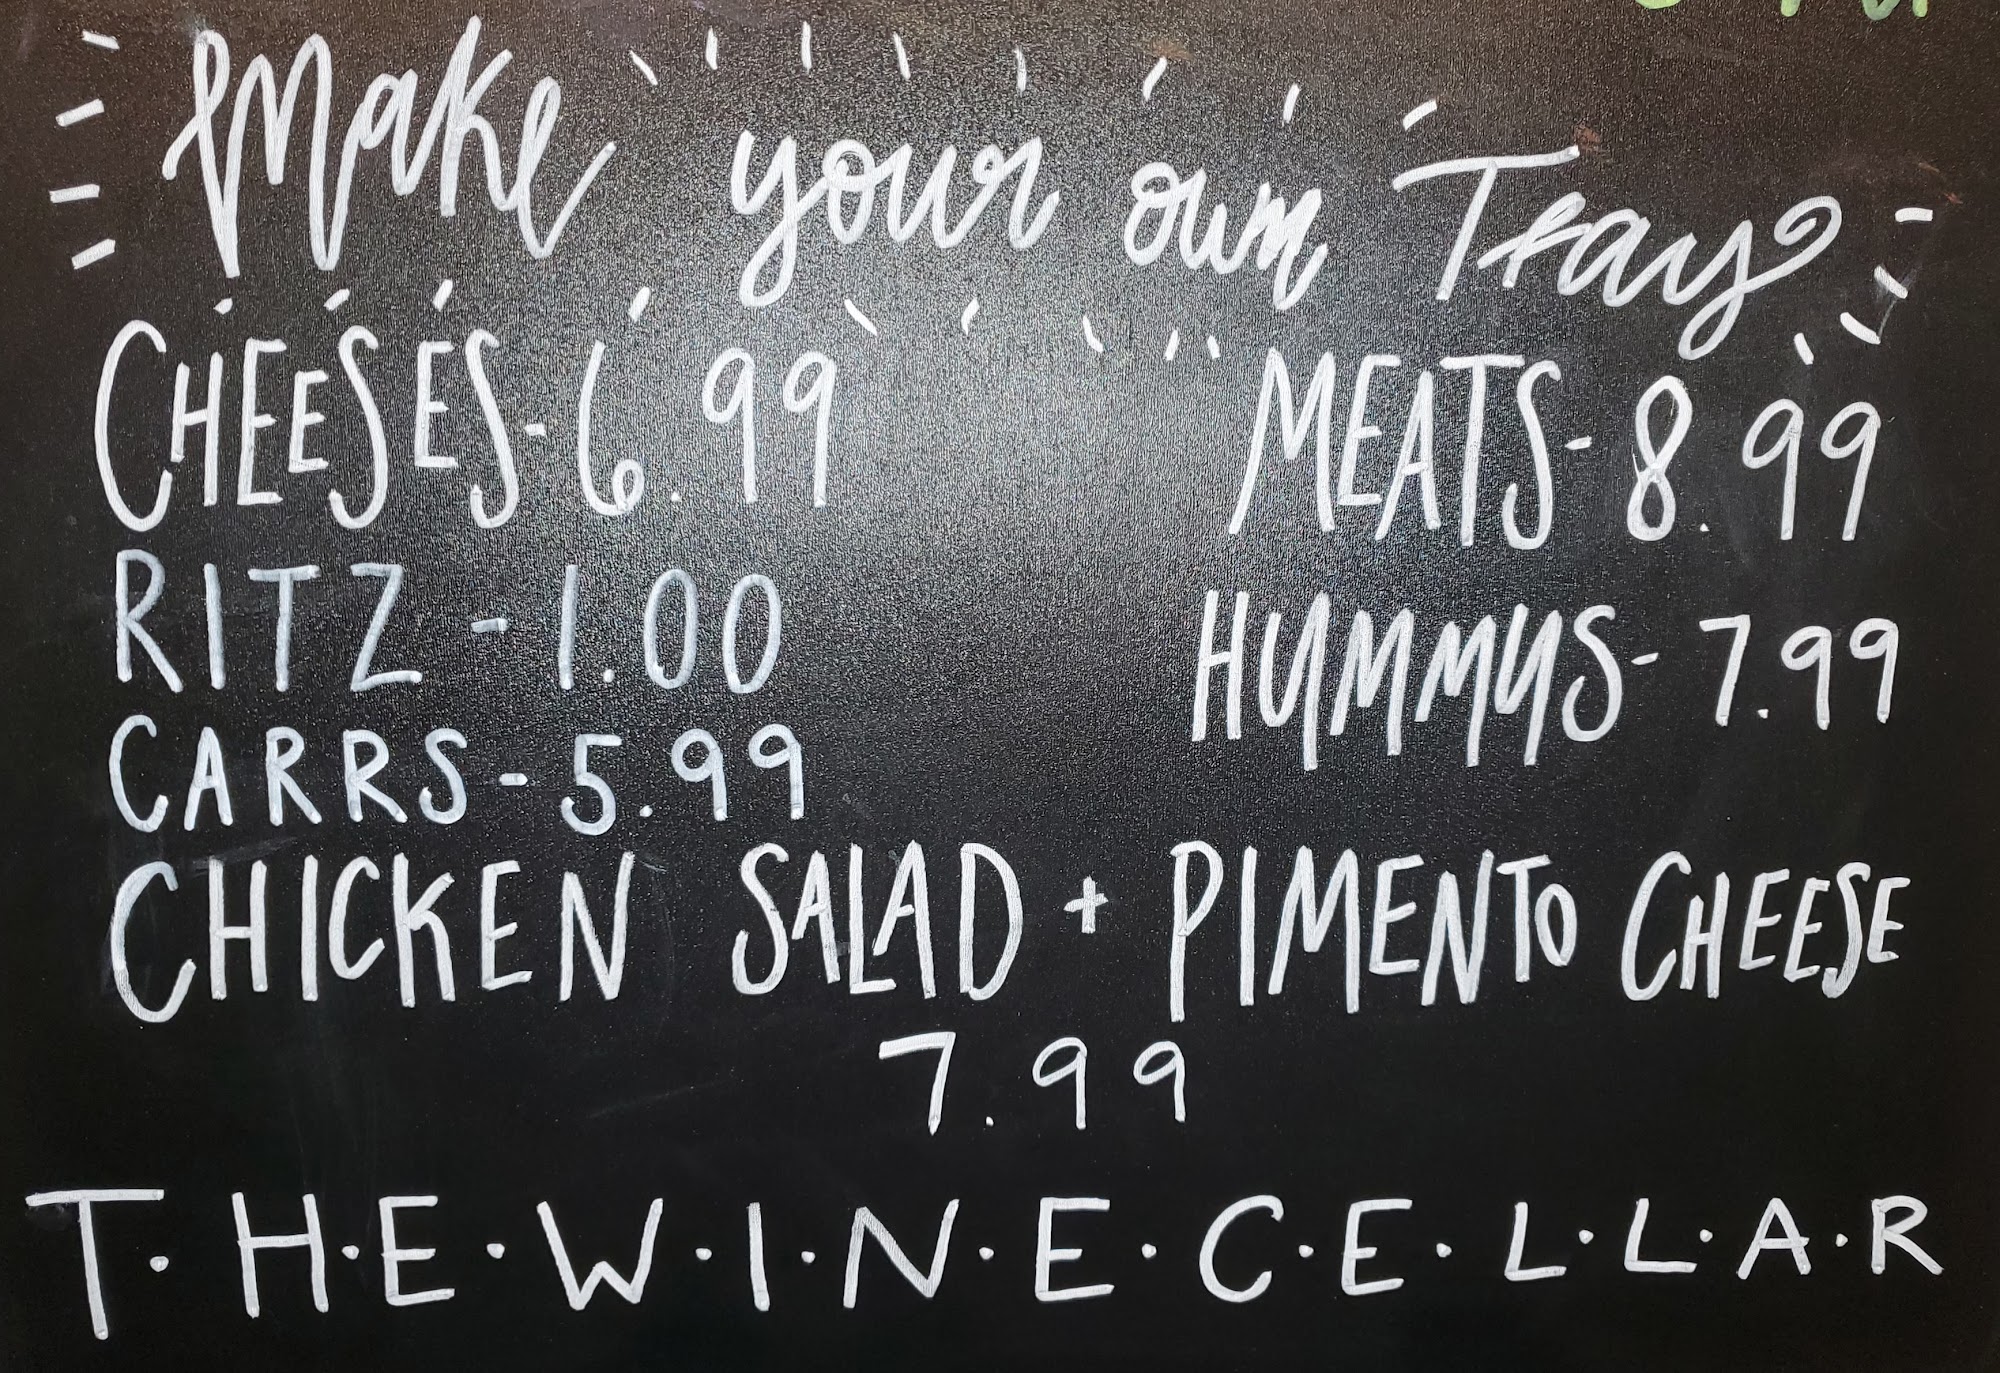 Make your own Tray
CHEESES-6.99
MEATS-8.99
RITZ-1.00
HUMMUS-7.99
CARRS-5.99
CHICKEN SALAD + PIMENTO CHEESE
7.99
T·H·E·W·I·N·E·C·E·L·L·A·R